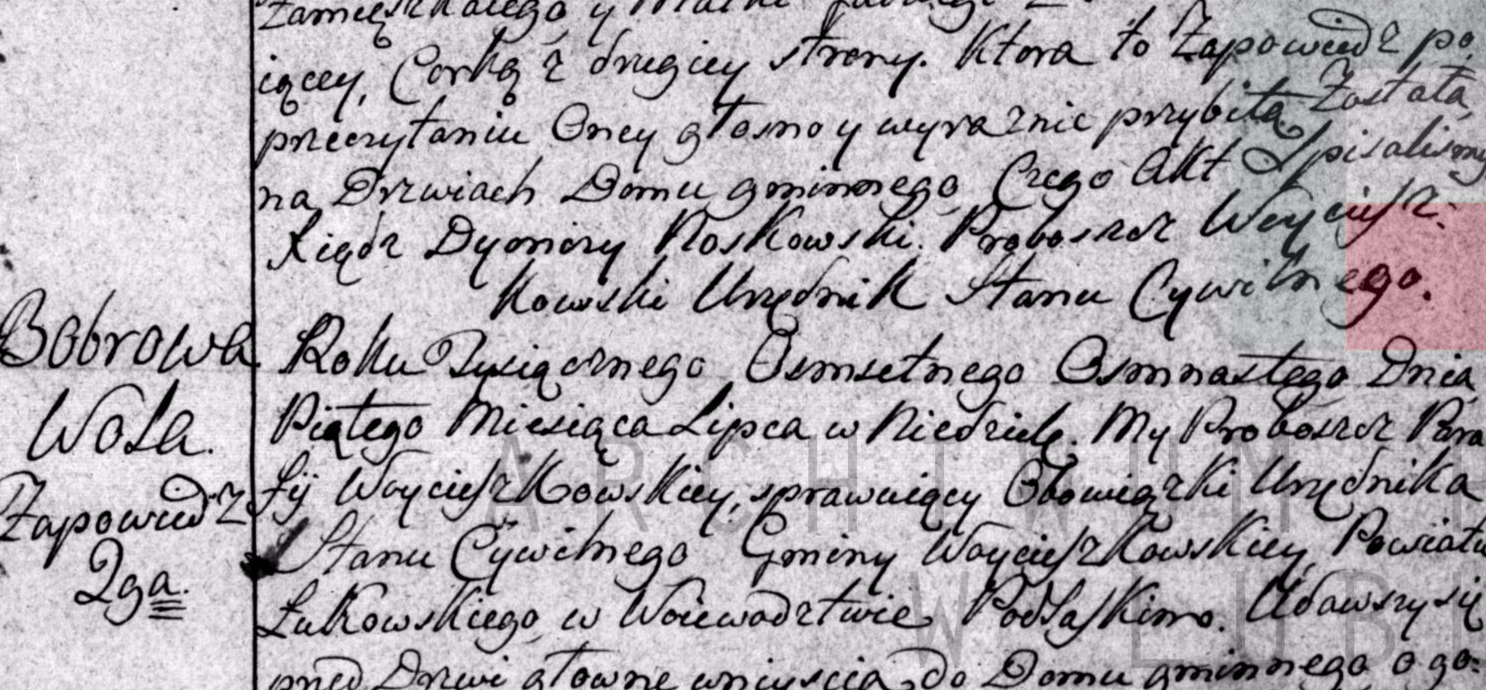 Zamięszkałego y Matki
iącey, Corką z drugiey strony. Ktora to Zapowiedz po
przeczytaniu Oney głosno y wyraznie przybitą Została,
na Drzwiach Domu gminnego, Czego Akt Spisalismy
Xiądz Dyonizy Roskowski. Proboszcz Woyciesz-
kowski Urzędnik Stanu Cywilnego.
Bobrowa
Wola.
Zapowiedz
2ga.
Roku Tysiącznego Osmsetnego Osmnastego Dnia
Piątego Miesiąca Lipca w Niedzielę. My Proboszcz Para
fij Woycieszkowskiey, sprawuiący Obowiązki Urzędnika
Stanu Cywilnego Gminy Woycieszkowskiey, Powiatu
Łukowskiego, w Woiewodztwie Podlaskim. Udawszy się
przed Drzwi głowne wniyscia, do Domu gminnego o go-
ARCHIWUM
W LUBL